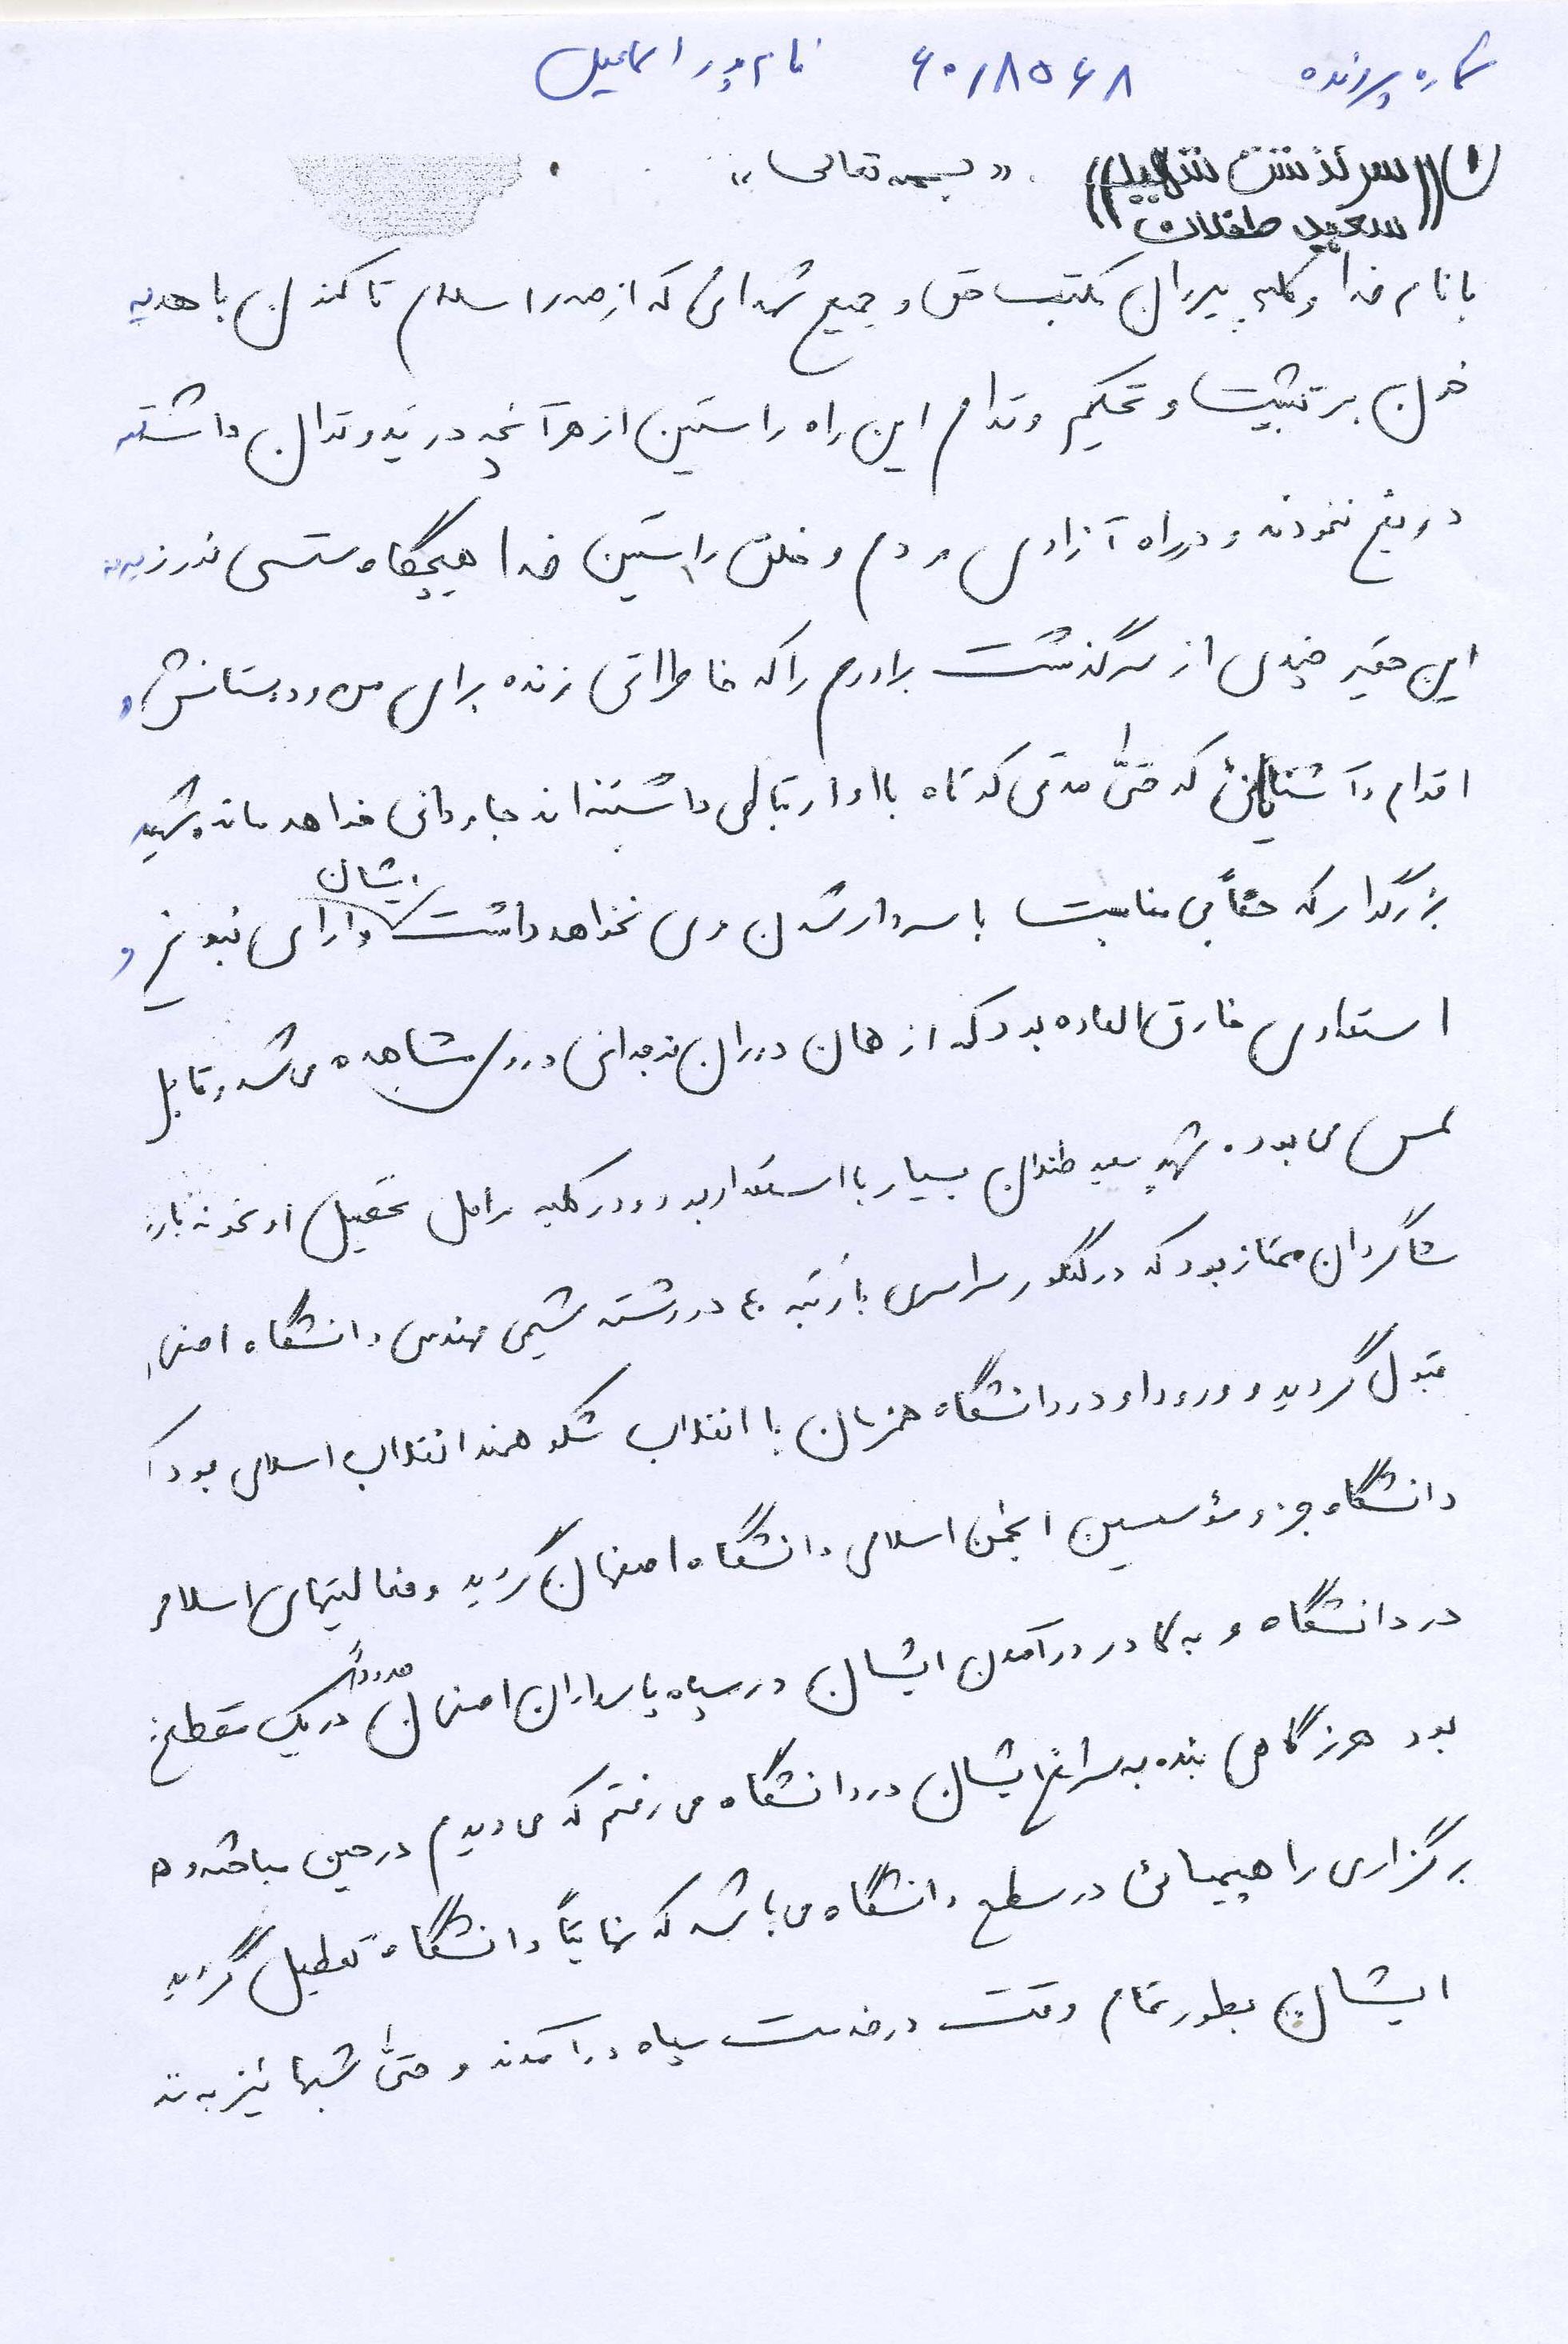 شماره پرونده ۶۰/۸۵۶۸ نام پدر اسماعیل
۱ ((سرگذشت شهید «بسمه تعالی»
سعید طفلان))
با نام خدا و کلیه پیروان مکتب حق و جمیع شهدائی که از صدر اسلام تا کنون با هدیه
خون بر تثبیت و تحکیم و تداوم این راه راستین از هر آنچه در ید و توان داشتند
دریغ ننمودند و در راه آزادی مردم و خلق راستین خدا هیچگاه سستی نورزیدند
این حقیر چندی از سرگذشت برادرم را که خاطراتی زنده برای من و دوستانش و
اقوام و آشنایانی که حتیٰ مدتی کوتاه با او ارتباطی داشته‌اند جاودانی خواهد ماند شهید
بزرگوار که حقاً بی مناسبت با سردار شدن وی نخواهد داشت ایشان دارای نبوغ و
استعدادی خارق العاده بود که از همان دوران نوجوانی در وی مشاهده می شد و قابل
لمس می بود. شهید سعید طفلان بسیار با استعداد بود و در کلیه مراحل تحصیل او نمونه بارز
شاگردان ممتاز بود که در کنکور سراسری با رتبه ۴۰ در رشته شیمی مهندسی دانشگاه
قبول گردید و ورود او در دانشگاه همزمان با انقلاب شکوهمند انقلاب اسلامی بود
دانشگاه جزو مؤسسین انجمن اسلامی دانشگاه اصفهان گردید و فعالیتهای اسلامی
در دانشگاه و به کادر در آمدن ایشان در سپاه پاسداران اصفهان در یک مقطع
بود هرزگاهی بنده به سراغ ایشان در دانشگاه می رفتم که می دیدم در حین مباحثه و
برگزاری راهپیمائی در سطح دانشگاه می باشد که نهایتاً دانشگاه تعطیل گردید
ایشان بطور تمام وقت در خدمت سپاه درآمدند و حتیٰ شبها نیز به